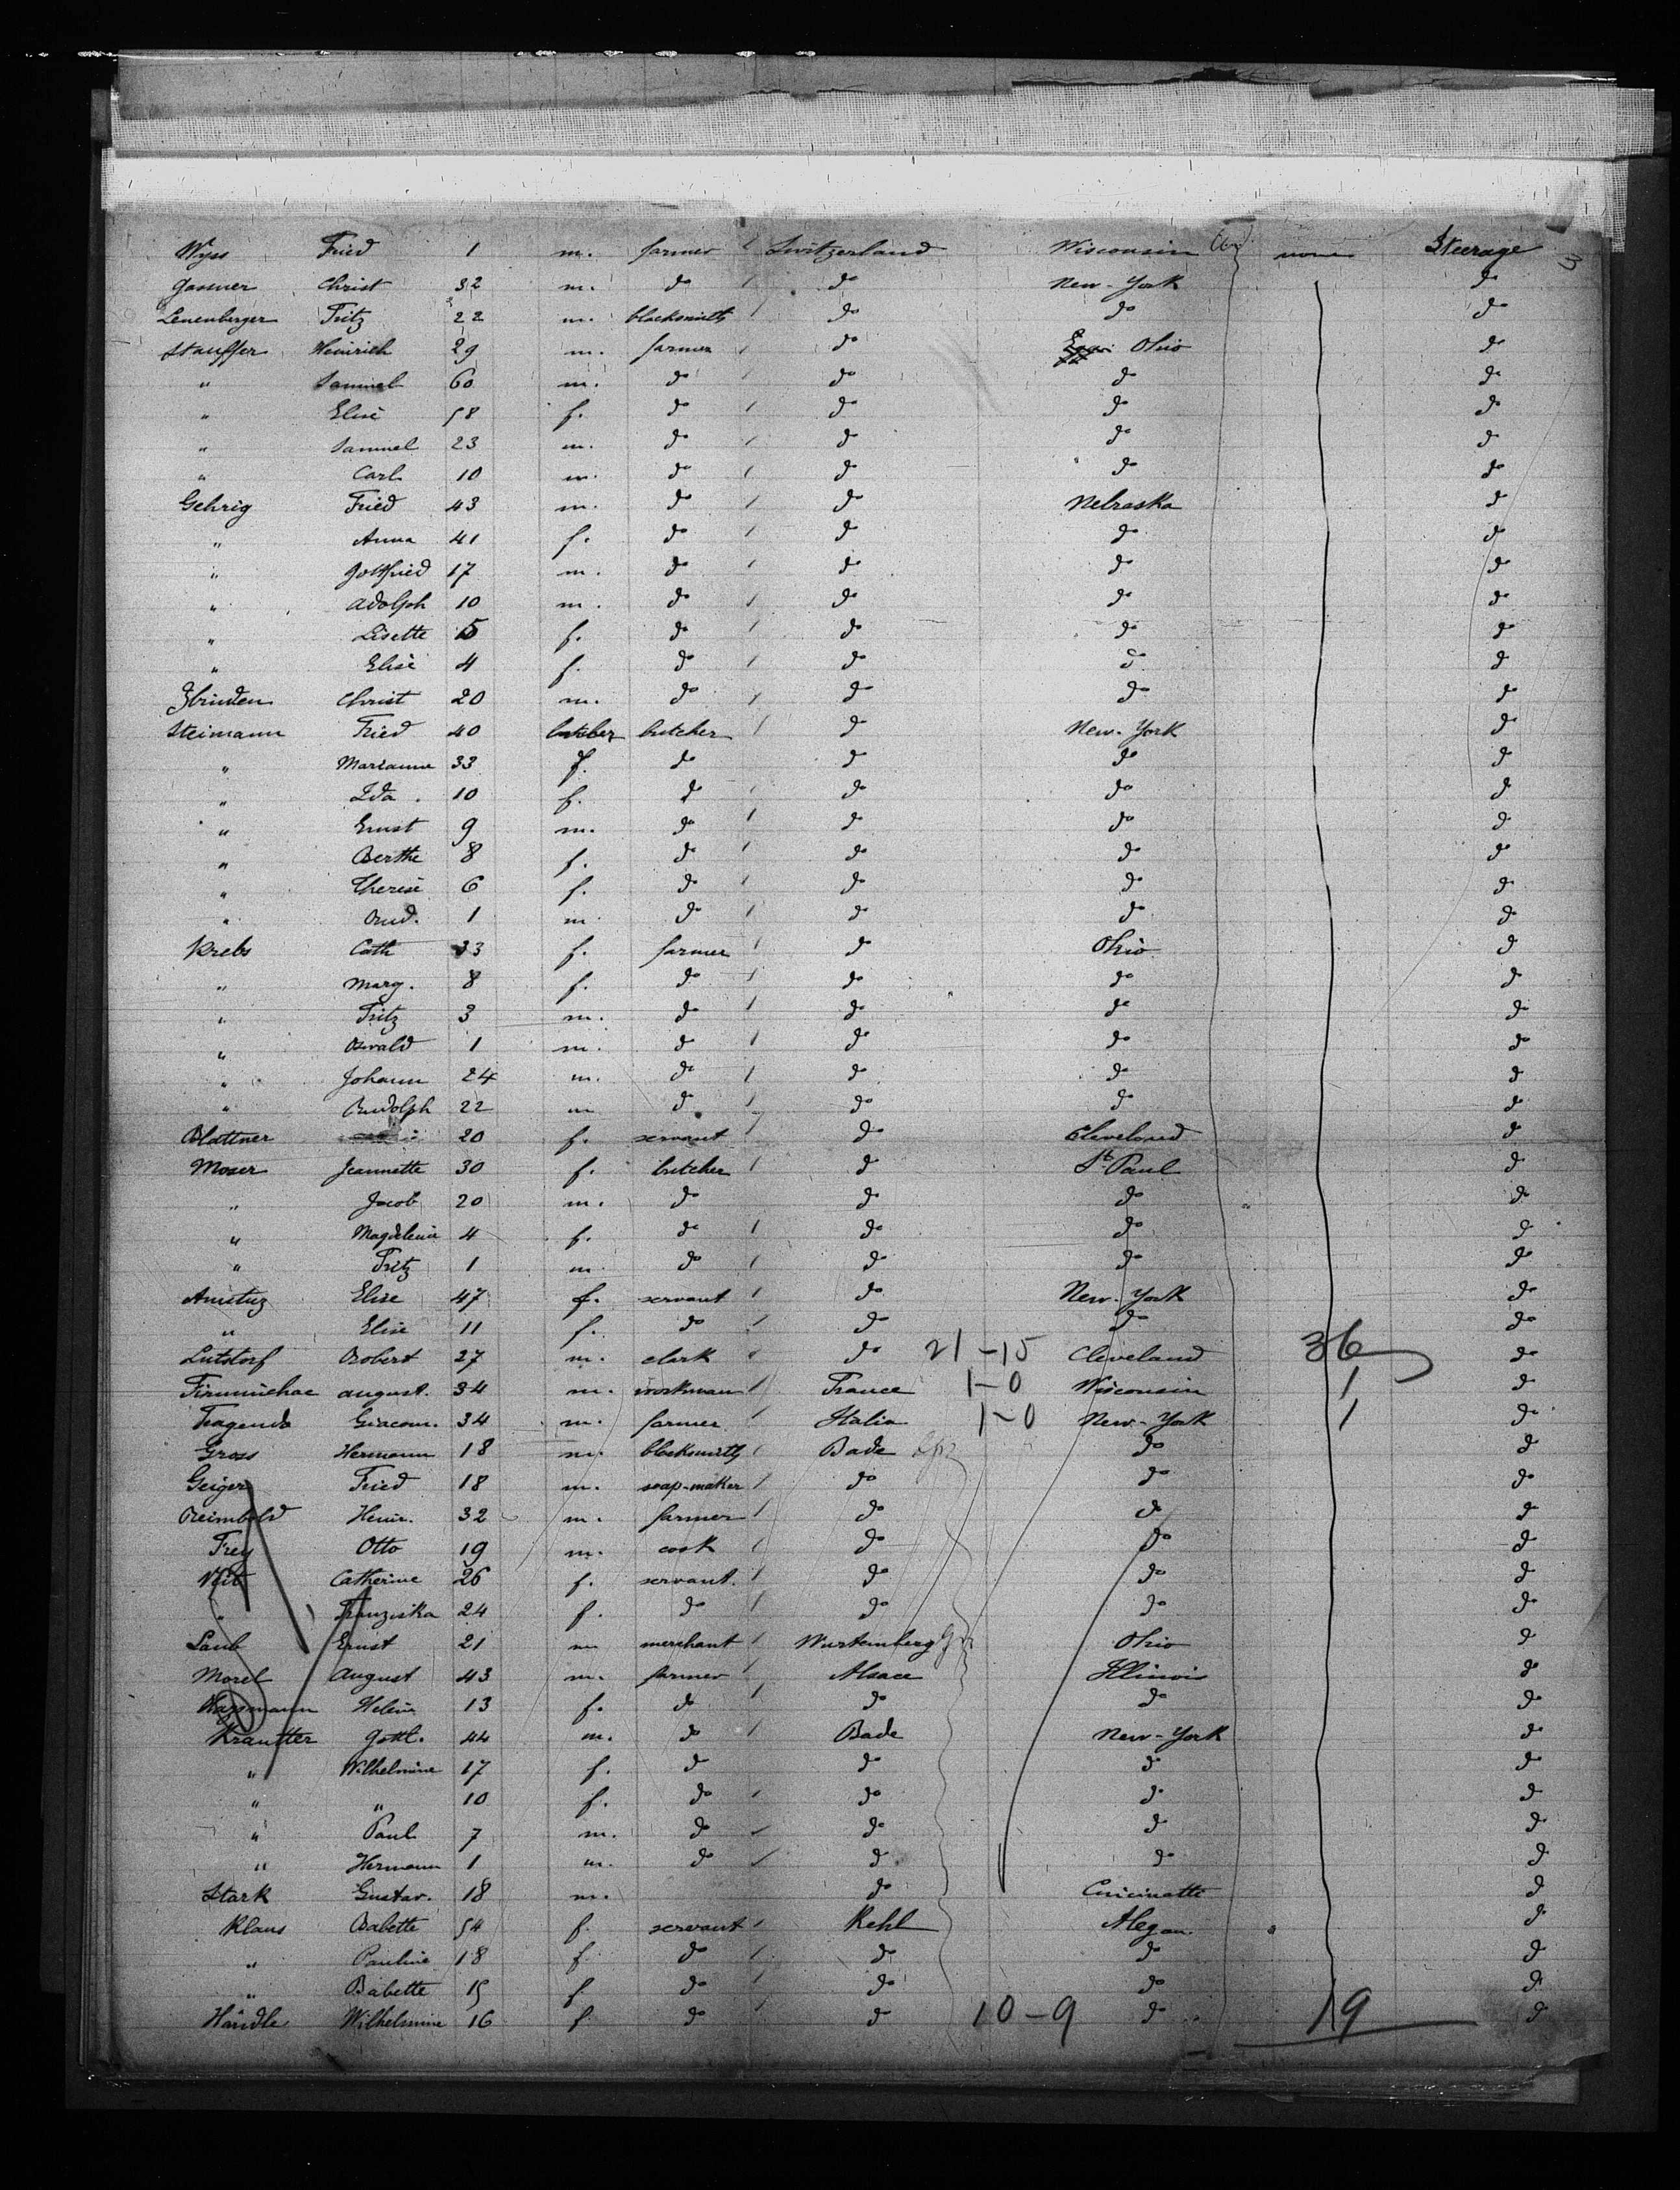 Wyss Fried 1 m. farmer Switzerland Wisconsin none Steerage 3
Gasner Christ 32 m. do do New-York do
Leuenberger Fritz 22 m. blacksmith do do do
Stauffer Heinrich 29 m. farmer do Ohio do
" Samuel 60 m. do do do do
" Elise 58 f. do do do do
" Samuel 23 m. do do do do
" Carl 10 m. do do do do
Gehrig Fried 43 m. do do Nebraska do
" Anna 41 f. do do do do
" Gottfried 17 m. do do do do
" Adolph 10 m. do do do do
" Lisette 5 f. do do do do
" Elise 4 f. do do do do
Zbinden Christ 20 m. do do do do
Steimann Fried 40 butcher butcher do New-York do
" Marianne 33 f. do do do do
" Ida 10 f. do do do do
" Ernst 9 m. do do do do
" Berthe 8 f. do do do do
" Therese 6 f. do do do do
" Rud. 1 m. do do do do
Krebs Cath 33 f. farmer do Ohio do
" Marg. 8 f. do do do do
" Fritz 3 m. do do do do
" Oswald 1 m. do do do do
" Johann 24 m. do do do do
" Rudolph 22 m do do do do
Blattner 20 f. servant do Cleveland do
Moser Jeannette 30 f. butcher do St. Paul do
" Jacob 20 m. do do do do
" Magdelena 4 f. do do do do
" Fritz 1 m. do do do do
Amstuz Elise 47 f. servant do New-York do
" Elise 11 f. do do do do
Lutstorf Robert 27 m. clark do 21-15 Cleveland 36 do
august. 34 m. workman France 1-0 Wisconsin 1 do
Tragenda Giacom. 34 m. farmer Italia 1-0 New-York 1 do
Gross Hermann 18 m. blacksmith Bade do do
Geiger Fried 18 m. soap-maker do do do
Reimbold Heinr. 32 m. farmer do do do
Frey Otto 19 m. cook do do do
Veit Catherine 26 f. servant. do do do
" Franziska 24 f. do do do do
Laub Ernst 21 m merchant Wurtemberg Ohio do
Morel August 43 m. farmer Alsace Illinois do
Helene 13 f. do do do do
Krautter Gottl. 44 m. do Bade New-York do
" Wilhelmine 17 f. do do do do
" " 10 f. do do do do
" Paul 7 m. do do do do
" Hermann 1 m. do do do do
Stark Gustav. 18 m. do Cincinatti do
Klaus Babette 54 f. servant Kehl Alegan do
" Pauline 18 f do do do do
" Babette 15 f do do do do
Händle Wilhelmine 16 f. do do 10-9 do 19 do